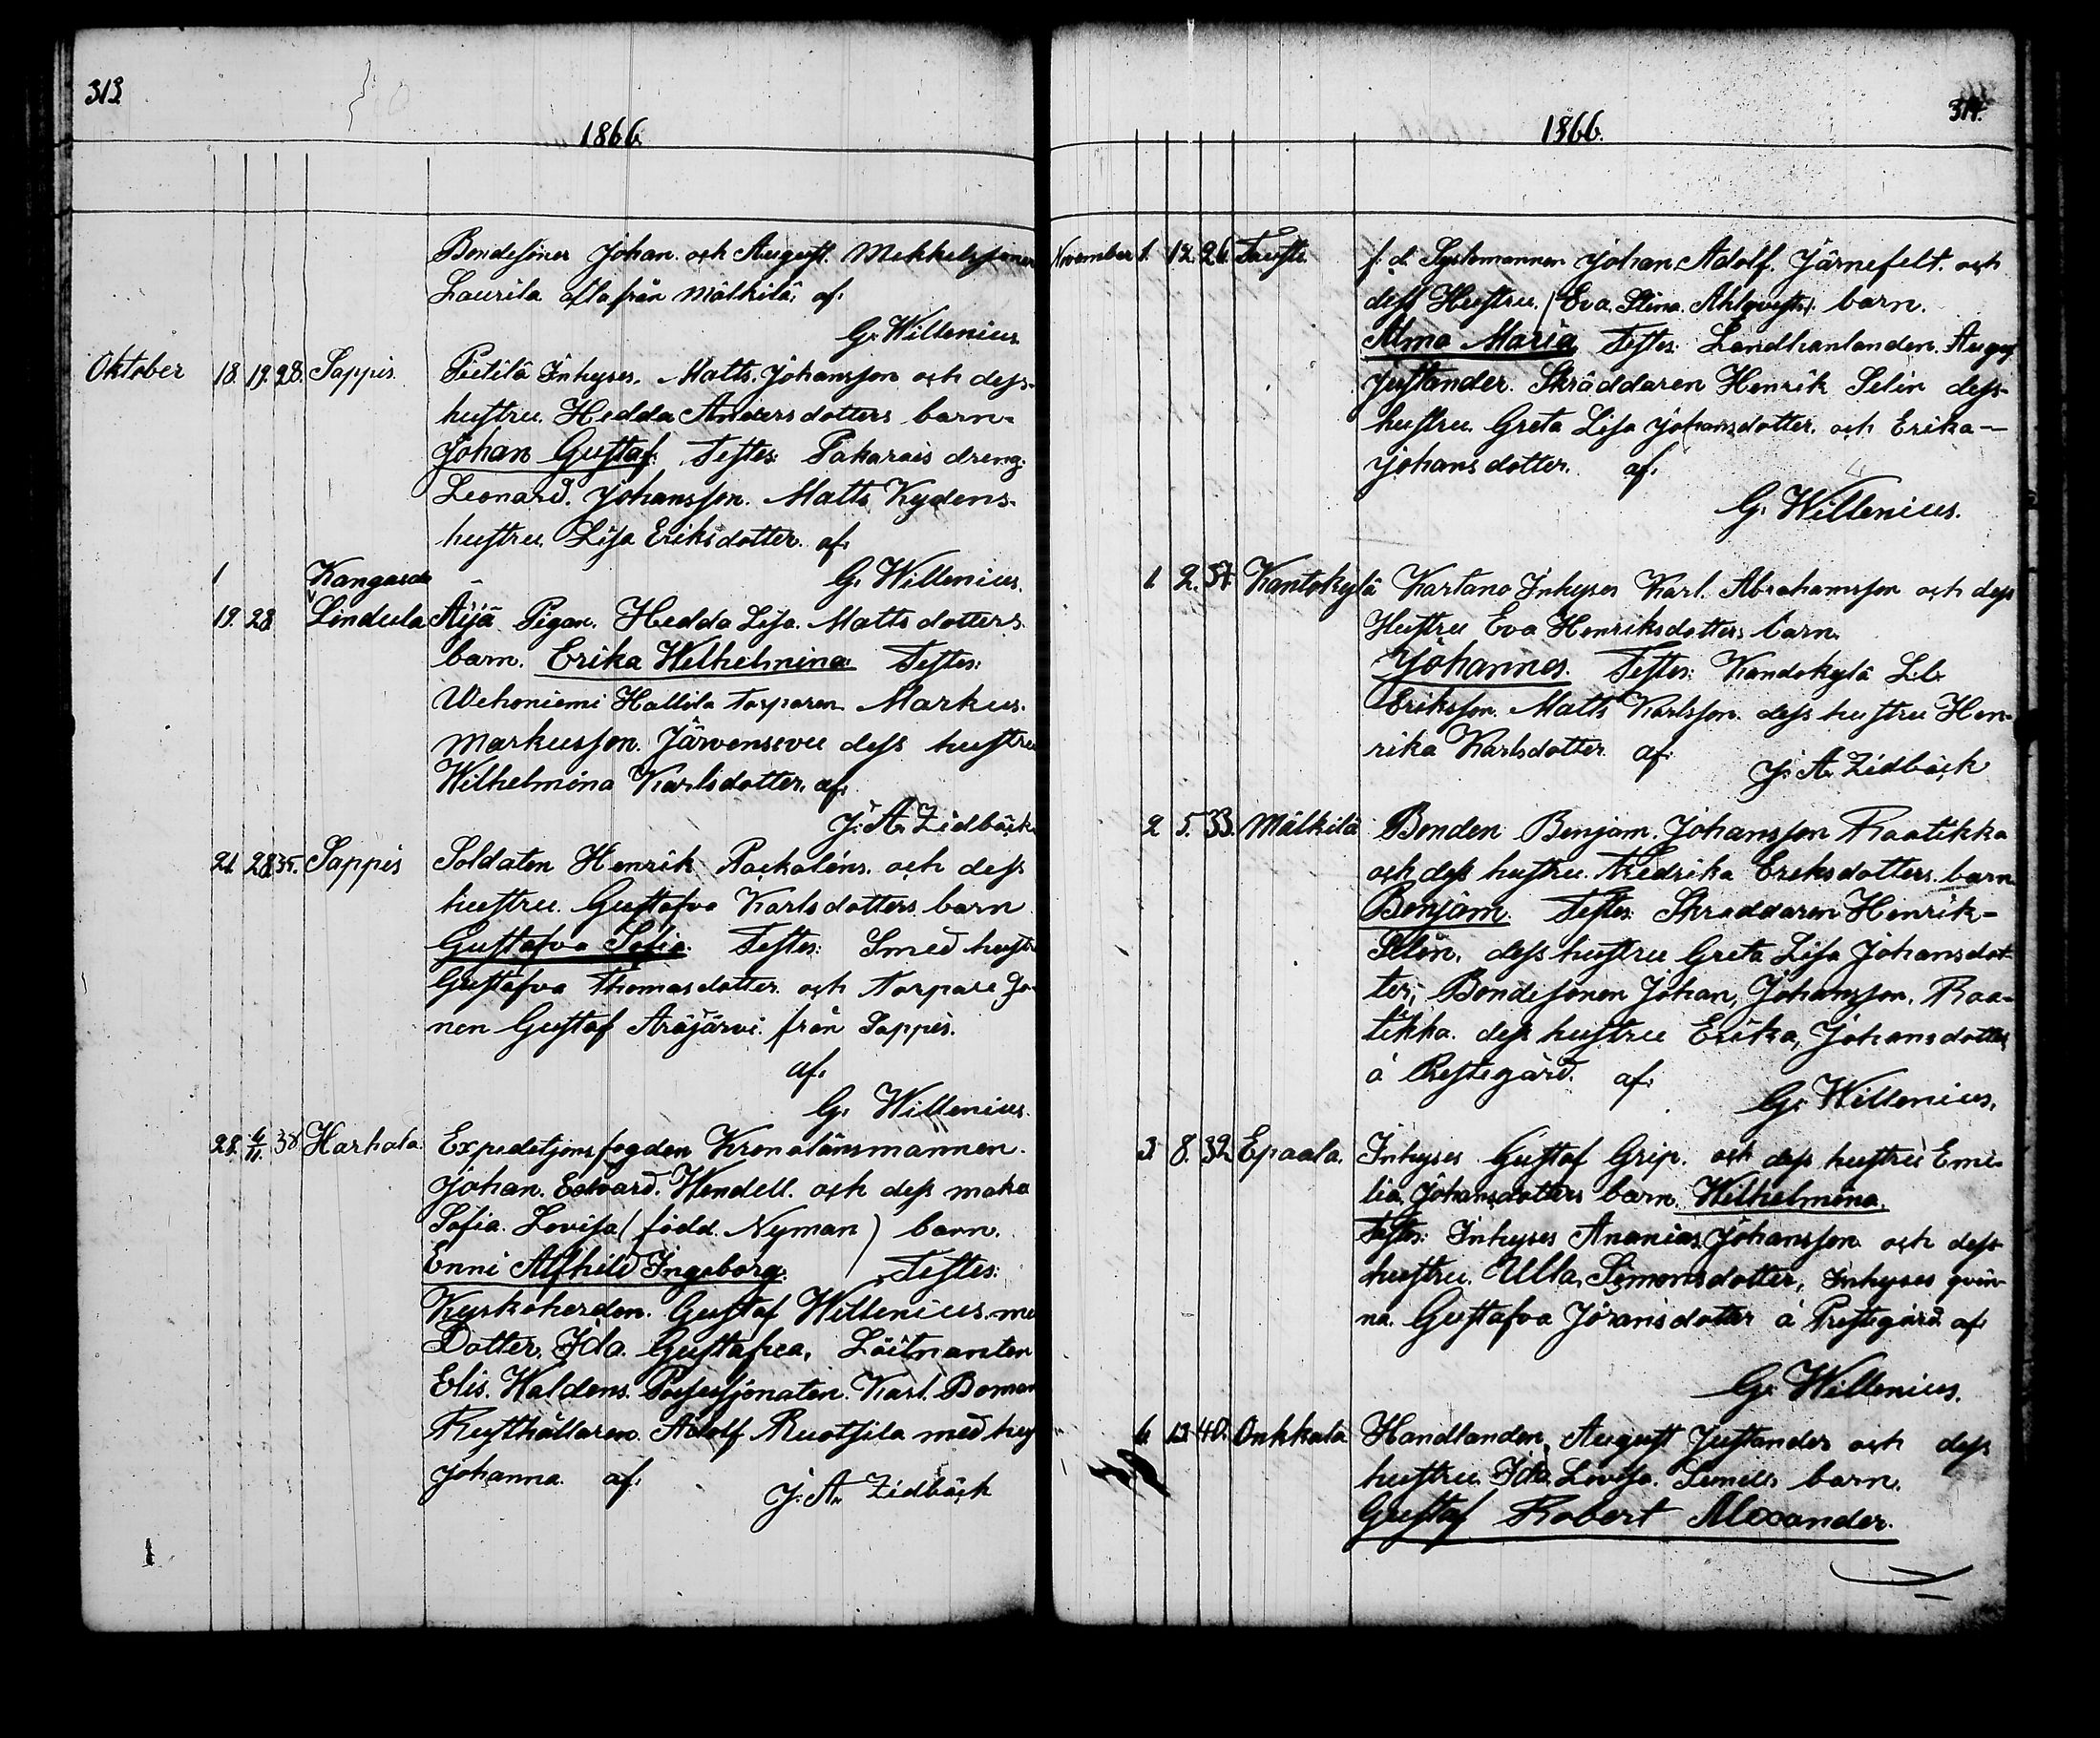 313
1866.
Bondesöner Johan och August Mekkelssöner
Laurila ofta från Mälkilä, af:
G. Willenius
Oktober 18. 19. 28. Sappis Pietilä Inhyses, Matts Johansson och dess
hustru Hedda Andersdotters barn
Johan Gustaf. Testes: Pakarais dreng
Leonard Johansson. Matts Kydens
hustru Lisa Eriksdotter. af:
G. Willenius.
Kangasala
19. 28 Lindula Äijä Pigan Hedda Lisa Mattsdotters
barn. Erika Wilhelmina. Testes:
Wehoniemi Hallila torparen Markus
Markusson Järvensivu dess hustru
Wilhelmina Karlsdotter, af:
J. A. Zidbäck
21. 28 35. Sappis Soldaten Henrik Packaléns och dess
hustru Gustafva Karlsdotters barn
Gustafva Sofia. Testes: Smed hustr
Gustafva Thomasdotter och torpare So-
nen Gustaf Aräjärvi från Sappis.
af:
G. Willenius.
28. 4/11. 38. Harhala Expeditjonsfogden Kronolänsmannen
Johan Edvard Wendell och dess maka
Sofia Lovisa (född Nyman) barn.
Enni Alfhild Ingeborg. Testes:
Kyrkoherden Gustaf Willenius me
Dotter, Ida Gustafva, Löitnanten
Elis Waldens. Possessjonaten Karl Boman
Rusthållaren Adolf Ruotsila med hus
Johanna af: J. A. Zidbäck
314.
1866.
November 1. 12. 26. f. d. Systomannen Johan Adolf Järnefelt och
dess Hustru (Eva Stina Ahlqvists) barn.
Alma Maria Testes: Landhanlanden Aug
Justander. Skräddaren Henrik Selin dess
hustru Greta Lisa Johansdotter. och Erika
Johansdotter. af:
G. Willenius.
1. 2. 37. Kantokylä Kartano Inhyses Karl Abrahamsson och dess
Hustru Eva Henriksdotters barn
Johannes. Testes: Kandokylä
Eriksson. Matts Karlsson dess hustru Hen-
rika Karlsdotter af:
J. A. Zidbäck
2 5. 33. Mälkilä Bonden Benjam. Johansson Raatikka
och dess hustru Fredrika Eriksdotters barn
Benjam. Testes: Skraddaren Henrik
Selin, dess hustru Greta Lisa Johansdot-
ter, Bondesonen Johan, Johansson, Raa-
tikka dess hustru Erika, Johansdotter
å Prestegård. af:
G. Willenius.
3. 8. 32 Epaala. Inhyses Gustaf Grip. och dess hustru Emi-
lia Johansdotters barn. Wilhelmina.
Testes: Inhyses Ananias Johansson och dess
hustru Ulla Simonsdotter, Inhyses qvin-
na Gustafva Jöransdotter å Prestegård af:
G. Willenius.
6. 13. 40. Onkkala Handlanden August Justander och dess
hustru Ida Lovisa barn.
Gustaf Robert Alexander.